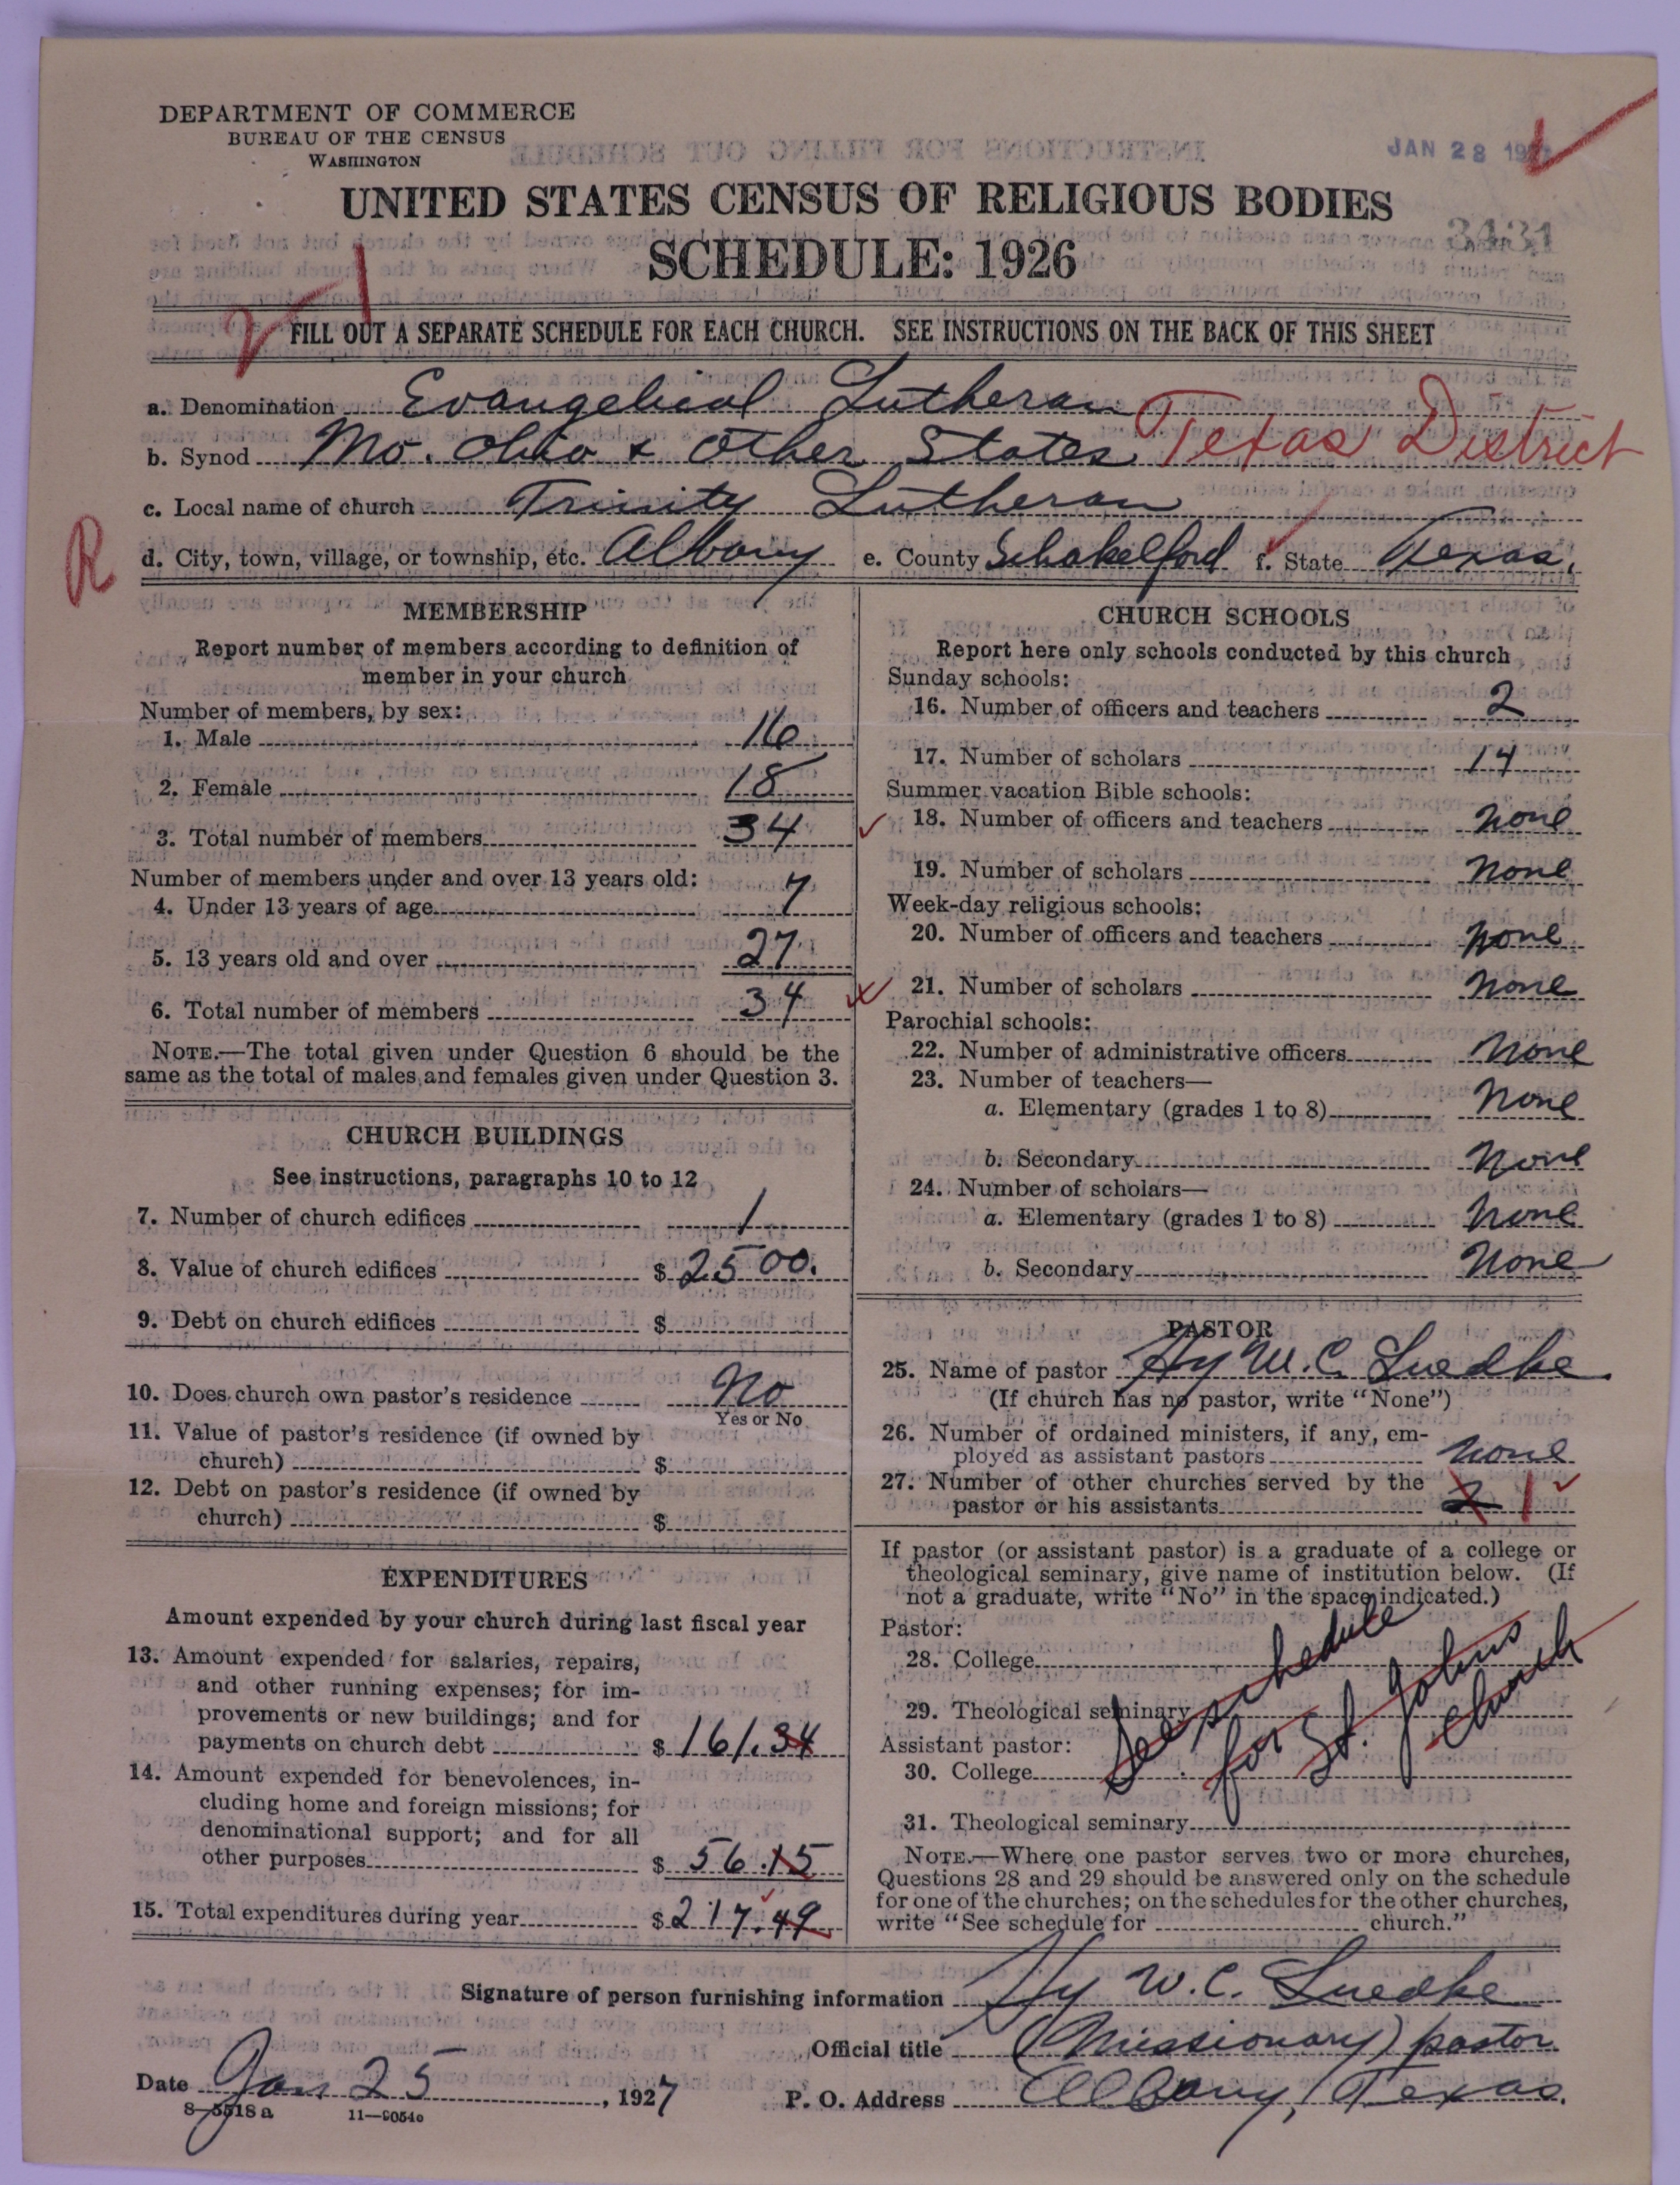 DEPARTMENT OF COMMERCE
BUREAU OF THE CENSUS
WASHINGTON
JAN 28 192
UNITED STATES CENSUS OF RELIGIOUS BODIES
SCHEDULE: 1926
3431
FILL OUT A SEPARATE SCHEDULE FOR EACH CHURCH. SEE INSTRUCTIONS ON THE BACK OF THIS SHEET
a. Denomination Evangelical Lutheran
b. Synod Mo. Ohio & Other States Texas District
c. Local name of church Trinity Lutheran
R
d. City, town, village, or township, etc. Albany e. County Schakelford f. State Texas.
MEMBERSHIP
Report number of members according to definition of
member in your church
Number of members, by sex:
1. Male 16
2. Female 18
3. Total number of members 34
Number of members under and over 13 years old:
4. Under 13 years of age 7
5. 13 years old and over 27
6. Total number of members 34
NOTE.—The total given under Question 6 should be the
same as the total of males and females given under Question 3.
CHURCH BUILDINGS
See instructions, paragraphs 10 to 12
7. Number of church edifices 1
8. Value of church edifices $ 2500.
9. Debt on church edifices $
10. Does church own pastor's residence No
Yes or No
11. Value of pastor's residence (if owned by
church) $
12. Debt on pastor's residence (if owned by
church) $
EXPENDITURES
Amount expended by your church during last fiscal year
13. Amount expended for salaries, repairs,
and other running expenses; for im-
provements or new buildings; and for
payments on church debt $ 161.34
14. Amount expended for benevolences, in-
cluding home and foreign missions; for
denominational support; and for all
other purposes $ 56.15
15. Total expenditures during year $ 217.49
CHURCH SCHOOLS
Report here only schools conducted by this church
Sunday schools:
16. Number of officers and teachers 2
17. Number of scholars 14
Summer vacation Bible schools:
18. Number of officers and teachers none
19. Number of scholars none
Week-day religious schools:
20. Number of officers and teachers none
21. Number of scholars none
Parochial schools:
22. Number of administrative officers none
23. Number of teachers—
a. Elementary (grades 1 to 8) none
b. Secondary none
24. Number of scholars—
a. Elementary (grades 1 to 8) none
b. Secondary none
PASTOR
25. Name of pastor Hy W. C. Luedke
(If church has no pastor, write "None")
26. Number of ordained ministers, if any, em-
ployed as assistant pastors none
27. Number of other churches served by the
pastor or his assistants 2 1
If pastor (or assistant pastor) is a graduate of a college or
theological seminary, give name of institution below. (If
not a graduate, write "No" in the space indicated.)
Pastor:
28. College
29. Theological seminary
Assistant pastor:
30. College
See schedule
for St. Johns
church
31. Theological seminary
NOTE.—Where one pastor serves two or more churches,
Questions 28 and 29 should be answered only on the schedule
for one of the churches; on the schedules for the other churches,
write "See schedule for church."
Signature of person furnishing information Hy W. C. Luedke
Official title (Missionary) pastor
Date Jan 25, 1927 P. O. Address Albany, Texas.
8—5518 a 11—9054c